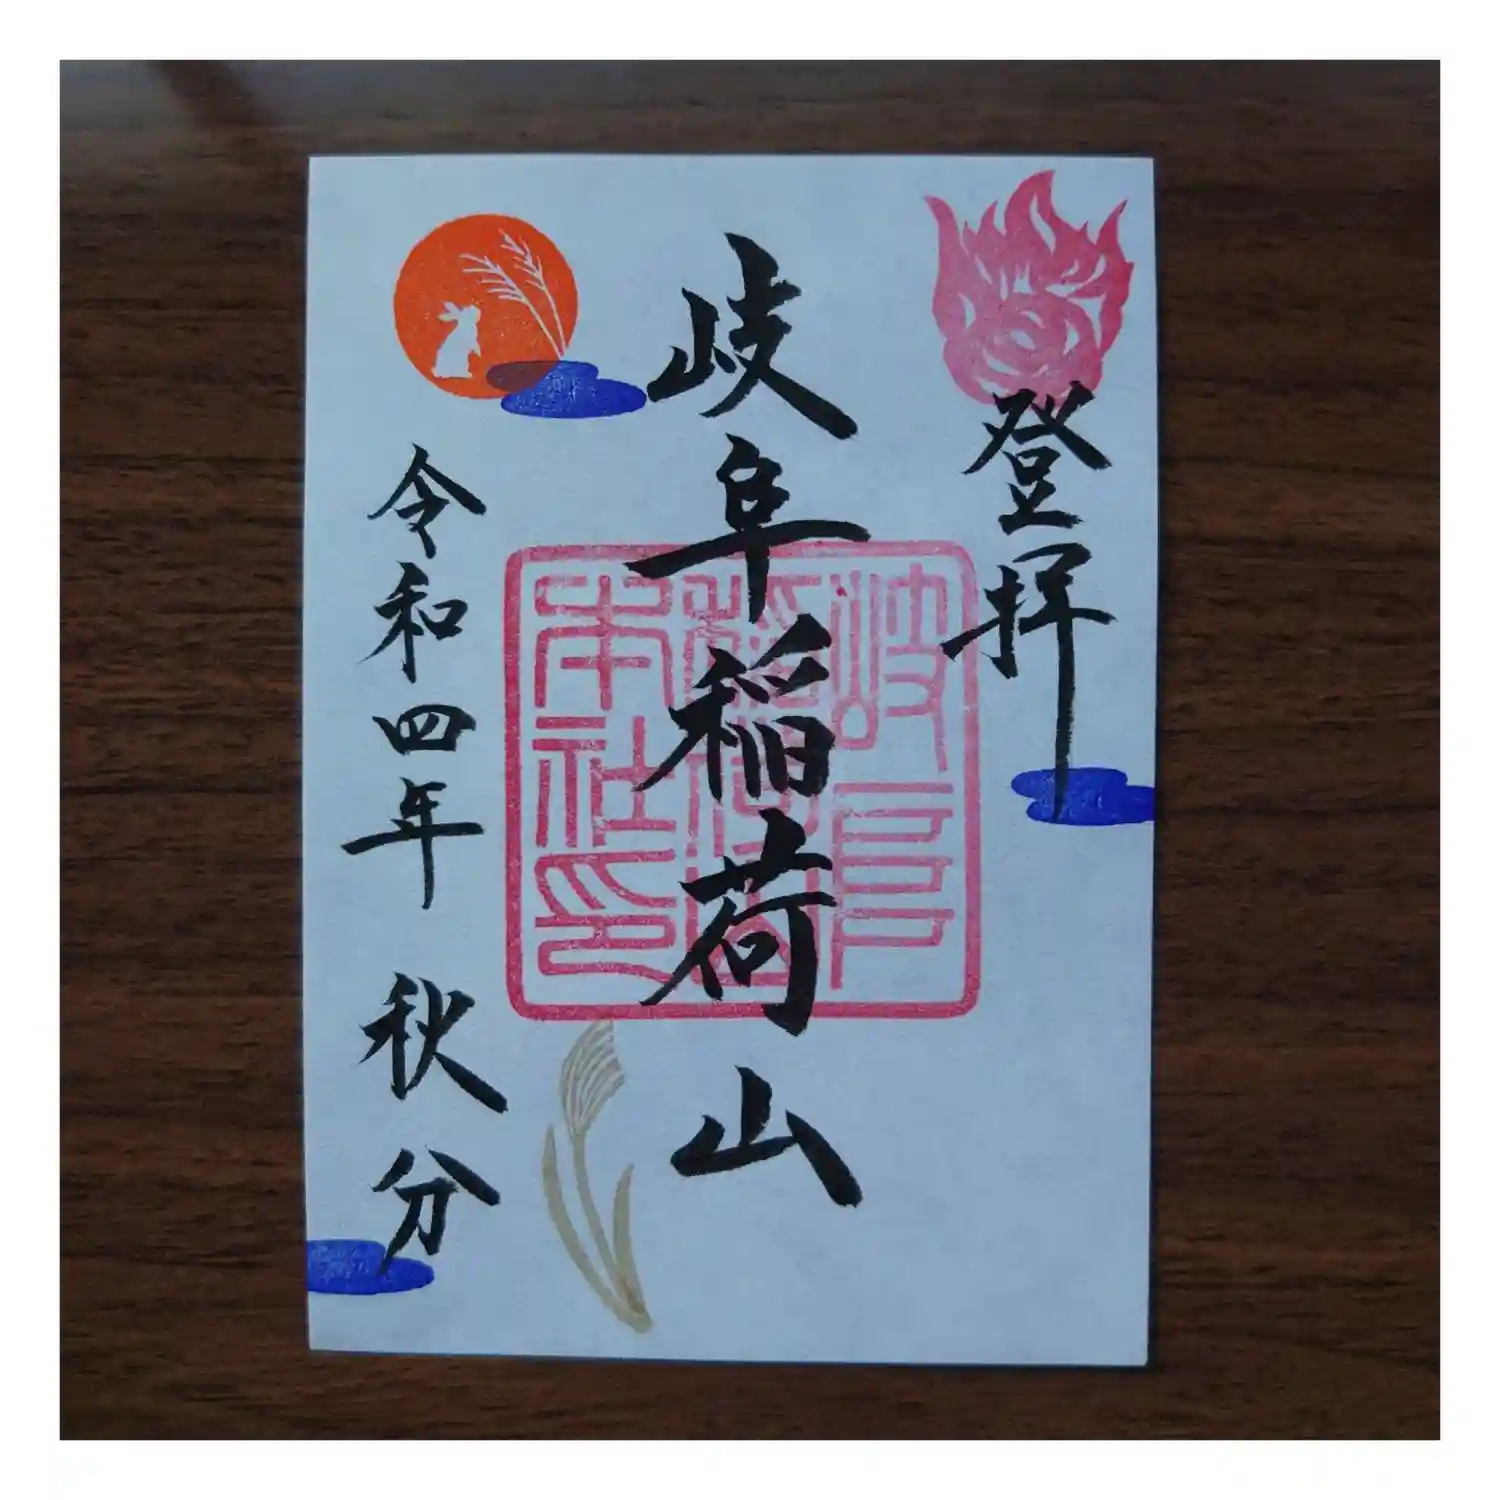 登拝
岐阜稲荷山
岐阜
稲荷山
本社印
令和四年 秋分